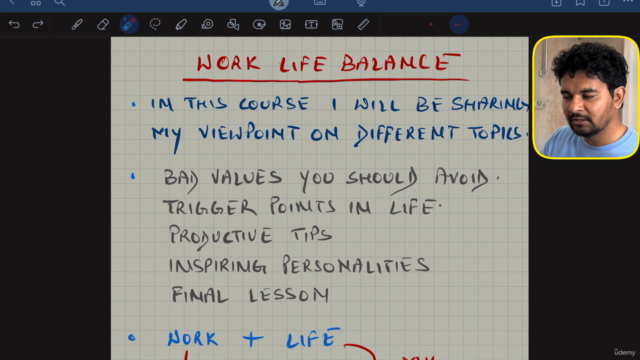 WORK LIFE BALANCE
• IN THIS COURSE I WILL BE SHARING
MY VIEWPOINT ON DIFFERENT TOPICS.
• BAD VALUES YOU SHOULD AVOID.
TRIGGER POINTS IN LIFE.
PRODUCTIVE TIPS
INSPIRING PERSONALITIES
FINAL LESSON
• WORK + LIFE
ûdemy